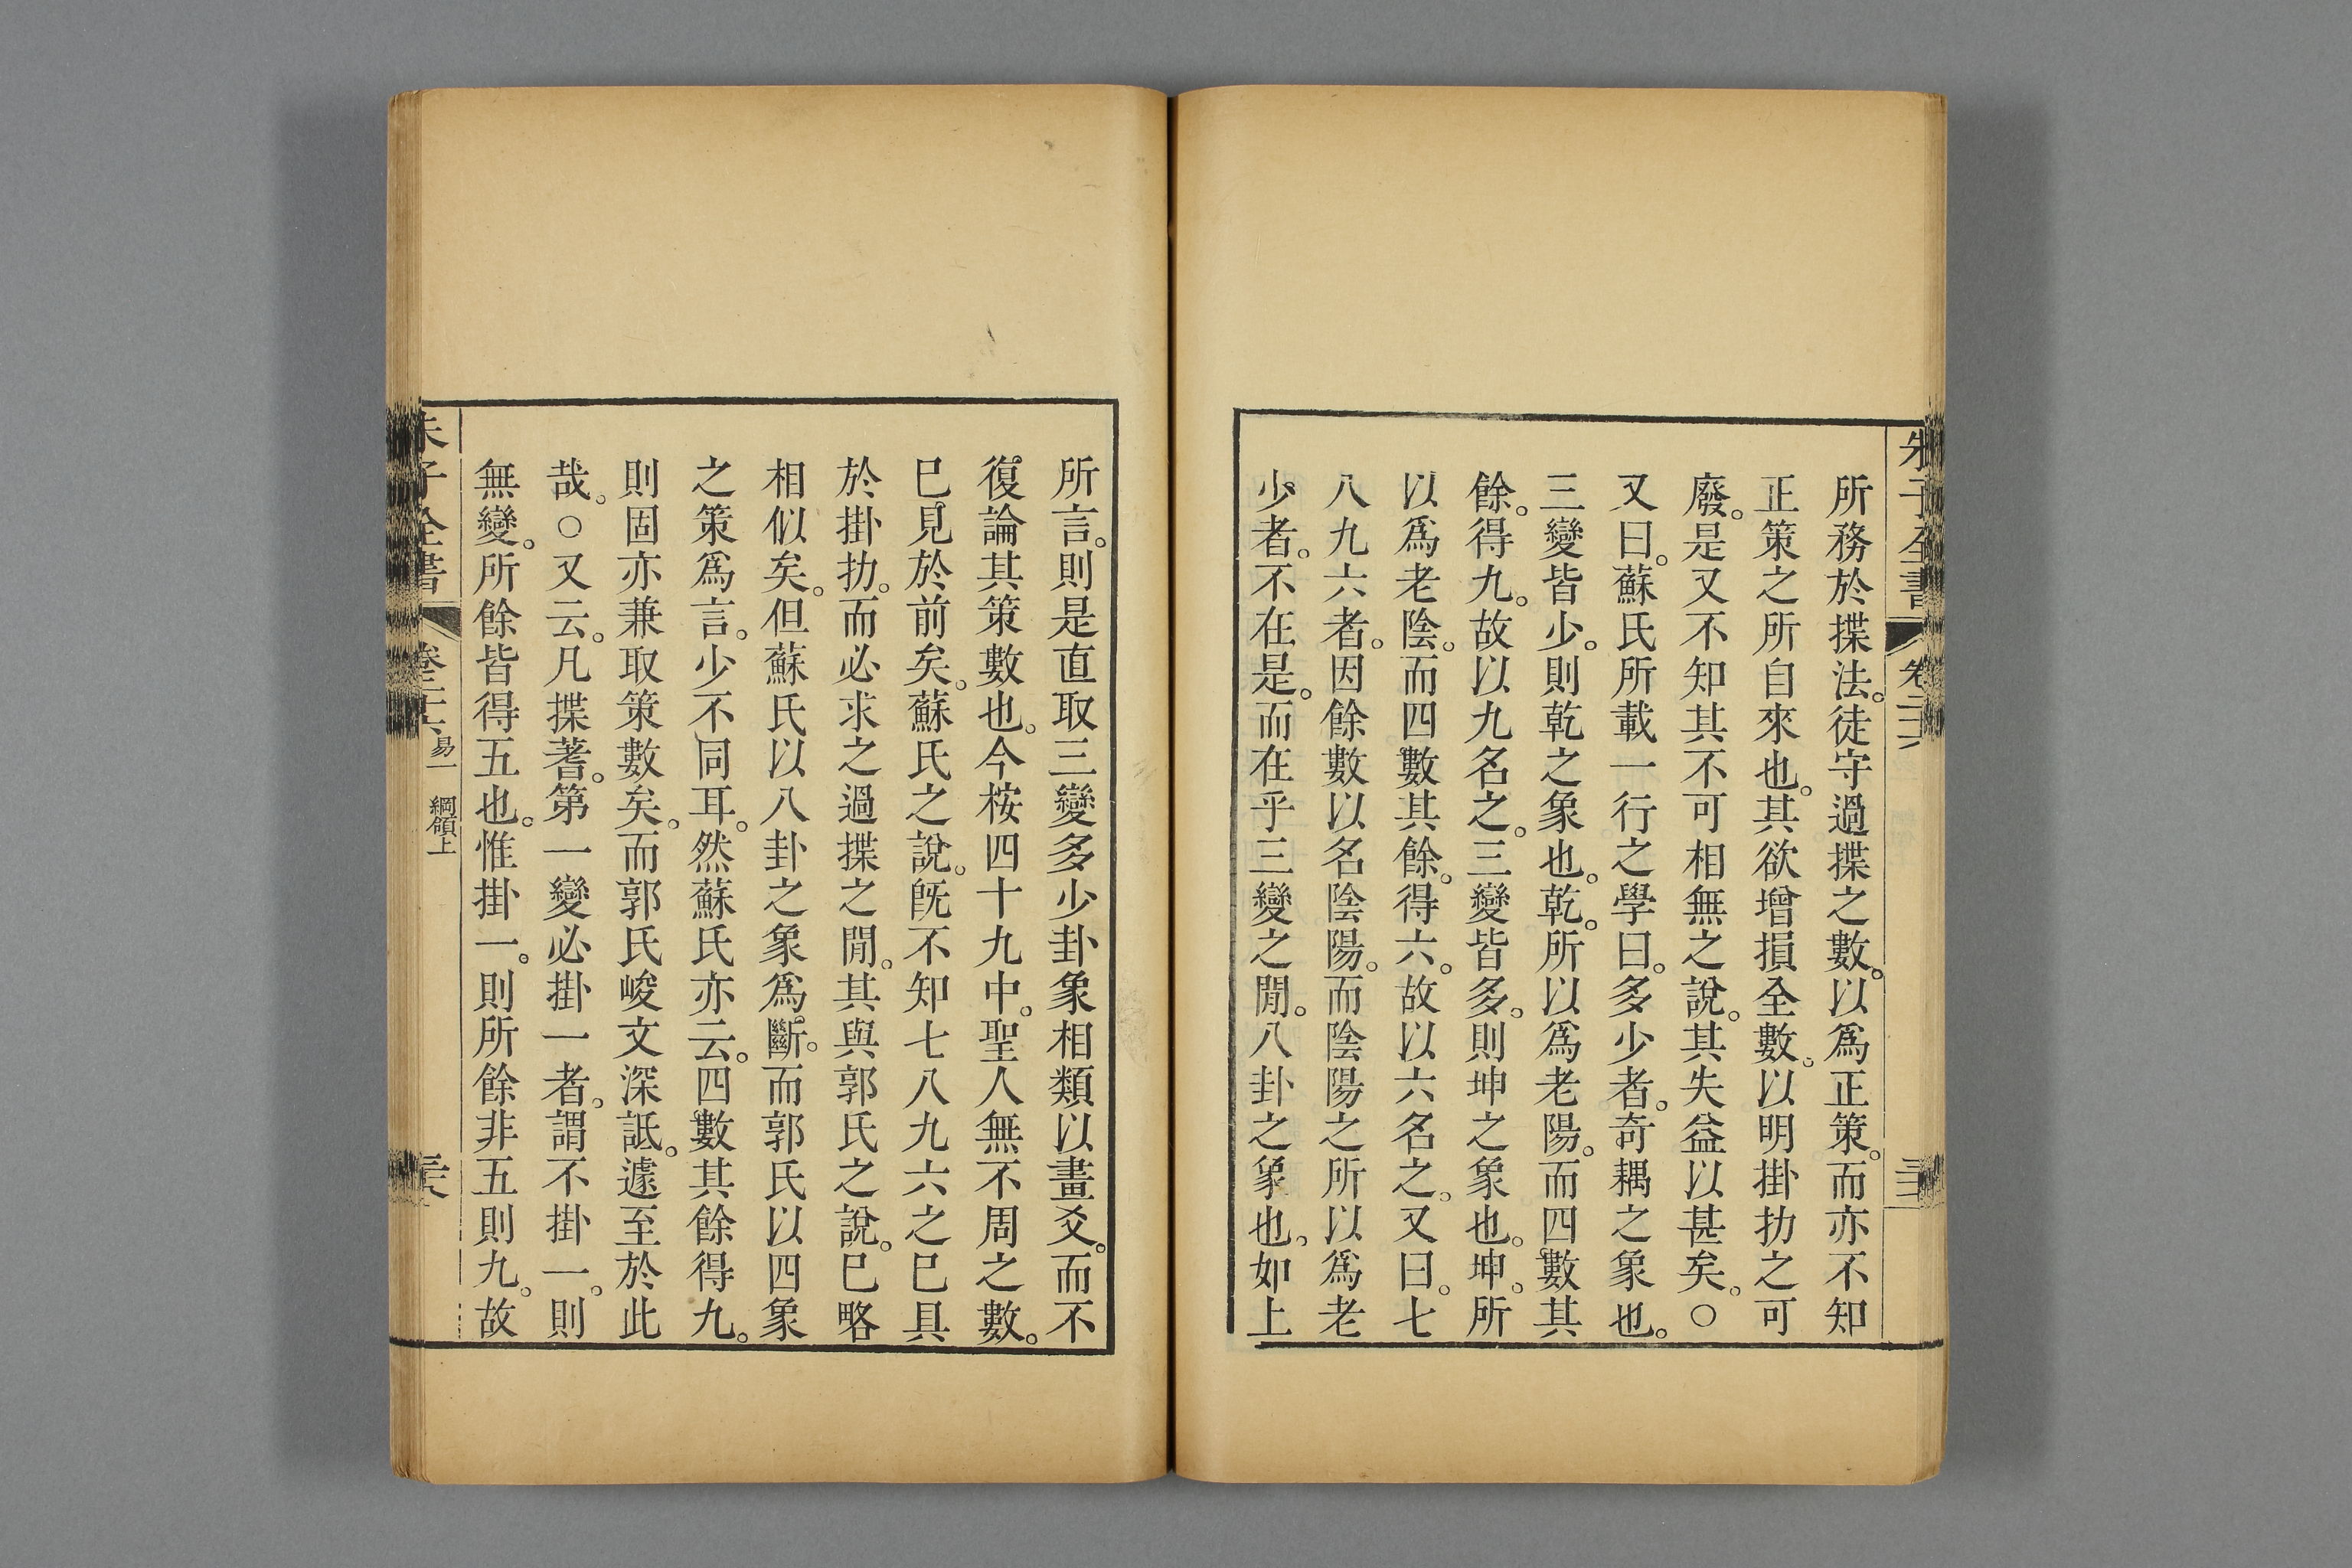 朱子全書 卷二十六
所務於揲法。徒守過揲之數。以爲正策。而亦不知
正策之所自來也。其欲增損全數。以明掛扐之可
廢。是又不知其不可相無之說。其失益以甚矣。○
又曰。蘇氏所載一行之學曰。多少者。奇耦之象也。
三變皆少。則乾之象也。乾。所以爲老陽。而四數其
餘。得九。故以九名之。三變皆多。則坤之象也。坤。所
以爲老陰。而四數其餘。得六。故以六名之。又曰。七
八九六者。因餘數以名陰陽。而陰陽之所以爲老
少者。不在是。而在乎三變之閒。八卦之象也。如上
所言。則是直取三變多少卦象相類以畫爻。而不
復論其策數也。今桉四十九中。聖人無不周之數。
巳見於前矣。蘇氏之說。旣不知七八九六之巳具
於掛扐。而必求之過揲之閒。其與郭氏之說。巳略
相似矣。但蘇氏以八卦之象爲斷。而郭氏以四象
之策爲言。少不同耳。然蘇氏亦云。四數其餘得九。
則固亦兼取策數矣。而郭氏峻文深詆。遽至於此
哉。○又云。凡揲蓍。第一變必掛一者。謂不掛一。則
無變。所餘皆得五也。惟掛一。則所餘非五則九。故
朱子全書 卷二十六 易一 綱領上